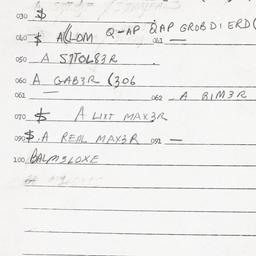 030 $
040 $ A(LOM Q-AP QAP GROBDIERD( 061 —
050 A STTOL83R .
060 A GAB3R (306
061 062 - A RIM3R
070 $ A LIXT MAX3R
090 $.A REAL MAX3R 091 —
100 BALM3LOXE